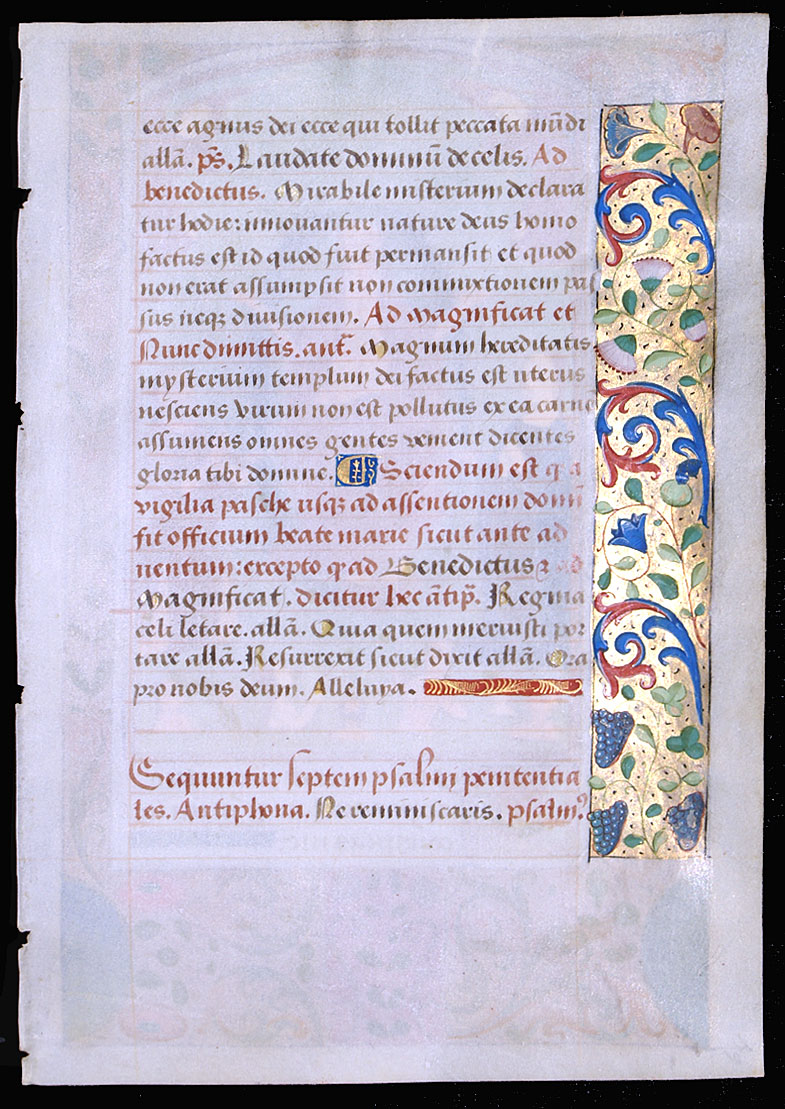 ecce agnus dei ecce qui tollit peccata mūdi
allā. p̄s. Laudate dominū de celis. Ad
benedictus. Mirabile misterium declara
tur hodie: innovantur nature deus homo
factus est id quod fuit permansit et quod
non erat assumpsit non commixtionem pas
sus neqz divisionem. Ad magnificat et
Nunc dimittis. ant̄. Magnum hereditatis
mysterium templum dei factus est uterus
nesciens virum non est pollutus ex ea carnē
assumens omnes gentes venient dicentes
gloria tibi domine. Sciendum est q a
vigilia pasche usqz ad assentionem domī
fit officium beate marie sicut ante ad
uentum: excepto q ad Benedictus ⁊ ad
Magnificat. dicitur hec ātip̄. Regina
celi letare. allā. Quia quem meruisti por
tare allā. Resurrexit sicut dixit allā. Ora
pro nobis deum. Alleluya.
Sequuntur septem psalmi penitentia
les. Antiphona. Ne reminiscaris. psalmꝰ